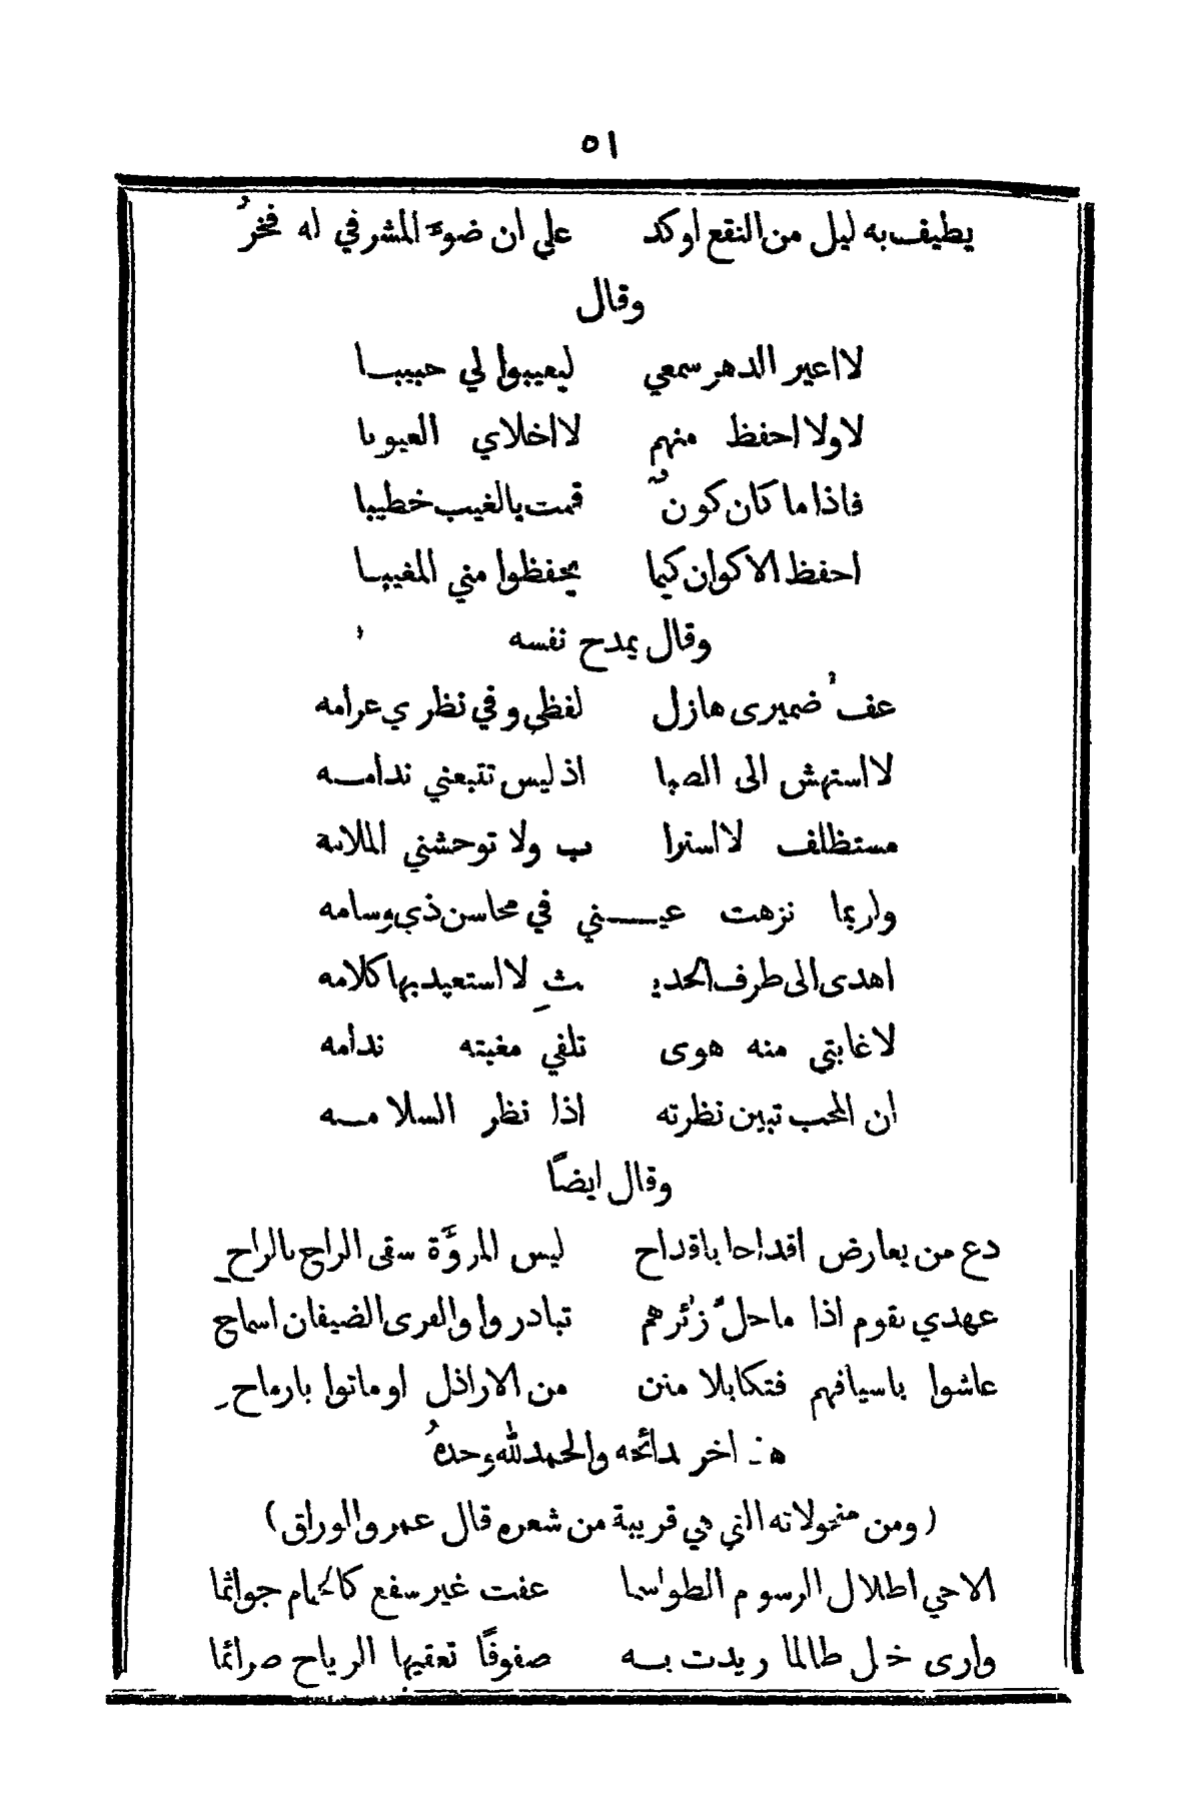 ٥١
يطيف به ليل من النقع اوكد على ان ضوء المشرفي له فخرُ
وقال
لا اعير الدهر سمعي ليعيبوا لي حبيبا
لا ولا احفظ منهم لا اخلاي العيوبا
فاذا ما كان كونٌ قمت بالغيب خطيبا
احفظ الاكوان كيما يحفظوا مني المغيبا
وقال يمدح نفسه
عفُ ضميرى هازل لفظي وفي نظري عرامه
لا استهش الى الصبا اذ ليس تتبعني ندامه
مستظلف لا استرا ب ولا توحشني الملامة
ولربما نزهت عيني في محاسن ذي وسامه
اهدى الى طرف الحديـ ـثِ لا استعيد بها كلامه
لا غايتي منه هوى تلفي مغبته ندامه
ان المحب تبين نظرته اذا نظر السلامه
وقال ايضاً
دع من يعارض اقداحا باقداح ليس المروَّة سقى الراح بالراحِ
عهدي بقوم اذا ما حلَّ زئرهم تبادروا والقرى الضيفان اسماح
عاشوا باسيافهم فتكا بلا منن من الاراذل او ماتوا بارماحِ
هذ اخر مدائحه والحمد لله وحدهُ
(ومن منحولاته التي هي قريبة من شعره قال عمرو الوراق)
الا حي اطلال الرسوم الطواسما عفت غير سفع كالحمام جواثما
وارى خل طالما ريدت به صفوفاً تعقيها الرياح صرائما